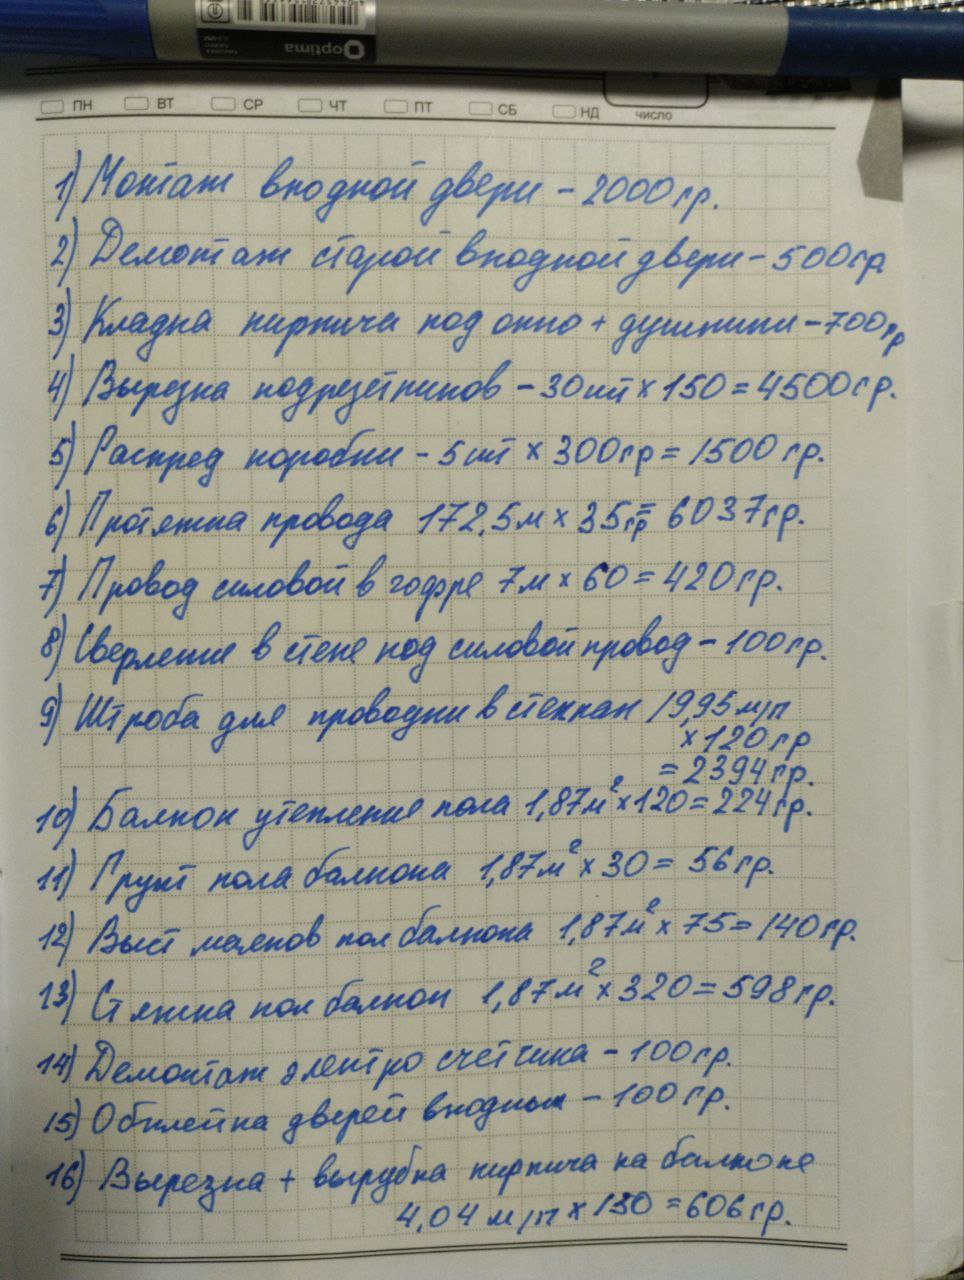 optima
ПН ВТ СР ЧТ ПТ СБ НД число
1) Монтаж входной двери - 2000гр.
2) Демонтаж старой входной двери - 500гр.
3) Кладка кирпича под окно + душники - 700гр
4) Вырезка подрезетников - 30шт х 150 = 4500гр.
5) Распред коробки - 5шт х 300гр = 1500гр.
6) Протяжка провода 172,5м х 35гр = 6037гр.
7) Провод силовой в гофре 7м х 60 = 420гр.
8) Сверление в стене под силовой провод - 100гр.
9) Штроба для проводки в стенках 19,95м/п
х 120гр
= 2394гр.
10) Балкон утепление пола 1,87м² х 120 = 224гр.
11) Грунт пола балкона 1,87м² х 30 = 56гр.
12) Выст маяков пол балкона 1,87м² х 75 = 140гр.
13) Стяжка пол балкон 1,87м² х 320 = 598гр.
14) Демонтаж электро счетчика - 100гр.
15) Обклейка дверей входных - 100гр.
16) Вырезка + вырубка кирпича на балконе
4,04м/п х 150 = 606гр.